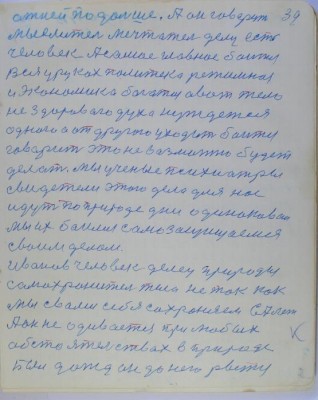 омней подольше. А он говорит 39
мыслител мечтател делу есть
человек А самое главное болит
Вся у руках политека режимная
и Экономика богаты а вот тело
не здарового духа нуждается
одного а от другого уходит болит
говорит это не вазможно будет
делат. Мы ученые психиатры
свидетели этого дела для нас
идут по природе дни одинаково
мы их баимся самозащищаемся
своим делом.
Иванов человек делец природы
самохранител тела не так как
мы сваи себя сохраняем
А он не одивается при любых
абстоятелствах в природе
Был дожд он до него